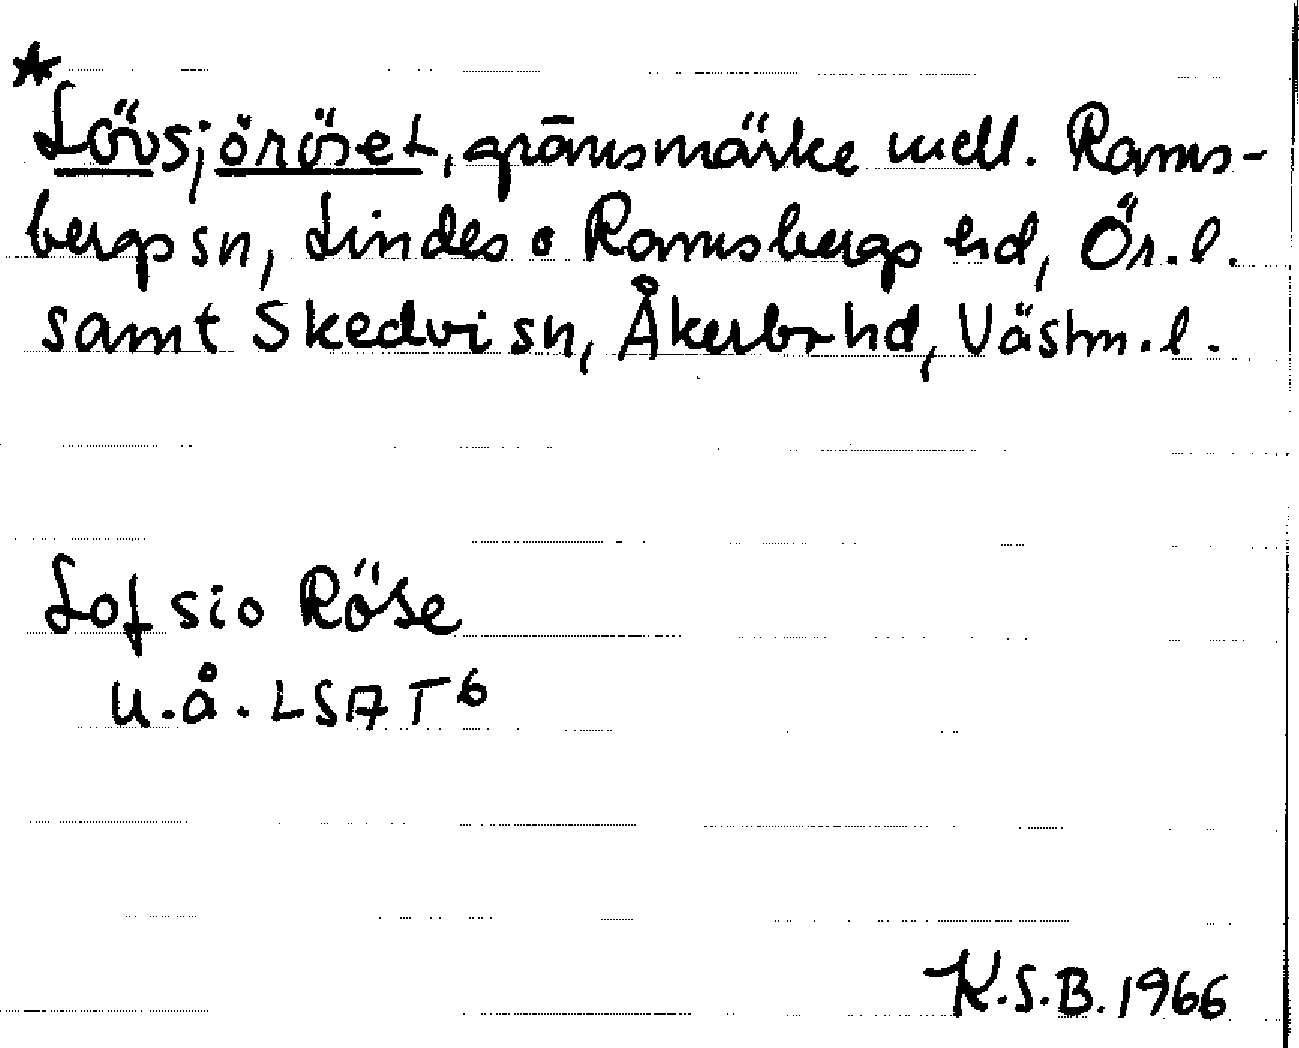 *Lövsjöröset, gränsmärke mell. Rams-
bergs sn, Lindes o Ramsbergs hd, Ör.l.
samt Skedvi sn, Åkerbo hd, Västm.l.
Lofsio Röse
u.å. LSA T6
K.S.B. 1966